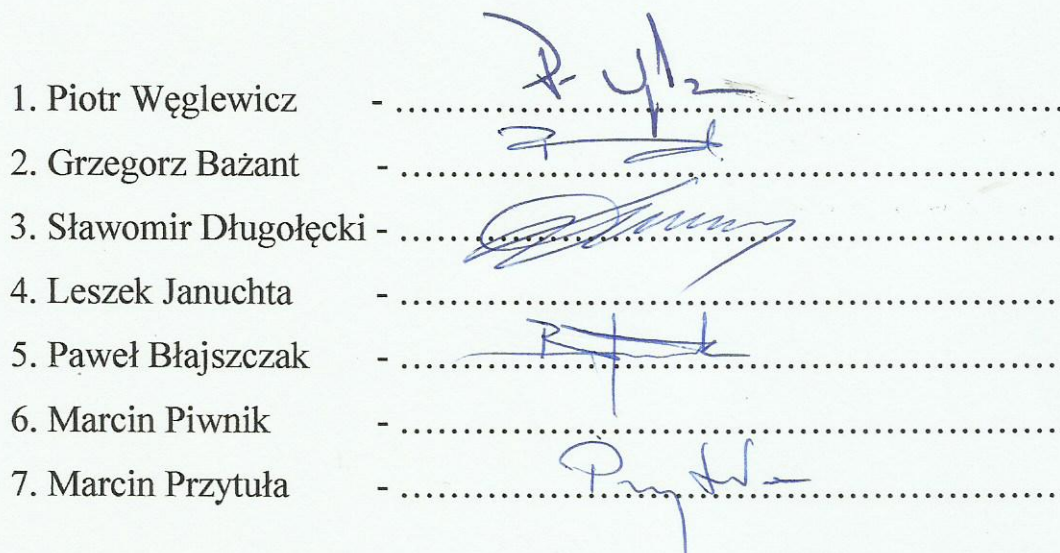 1. Piotr Węglewicz - ........................................................................
2. Grzegorz Bażant - ........................................................................
3. Sławomir Długołęcki - ........................................................................
4. Leszek Januchta - ........................................................................
5. Paweł Błajszczak - ........................................................................
6. Marcin Piwnik - ........................................................................
7. Marcin Przytuła - ........................................................................